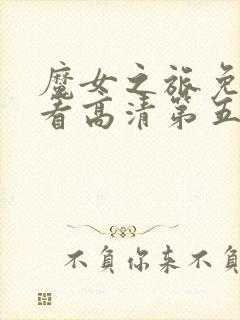 魔女之旅免
看高清第五
不负你来不负